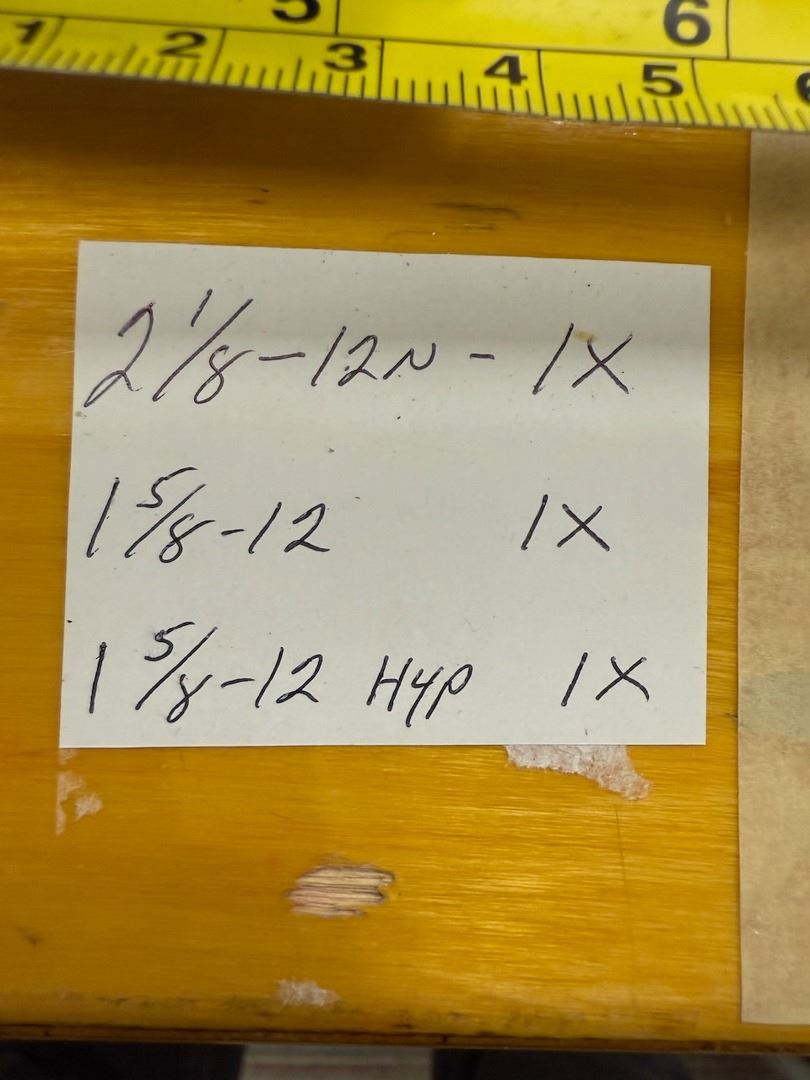 5 6
1 2 3 4 5 6
2 1/8-12N - 1X
1 5/8-12 1X
1 5/8-12 Hyp 1X